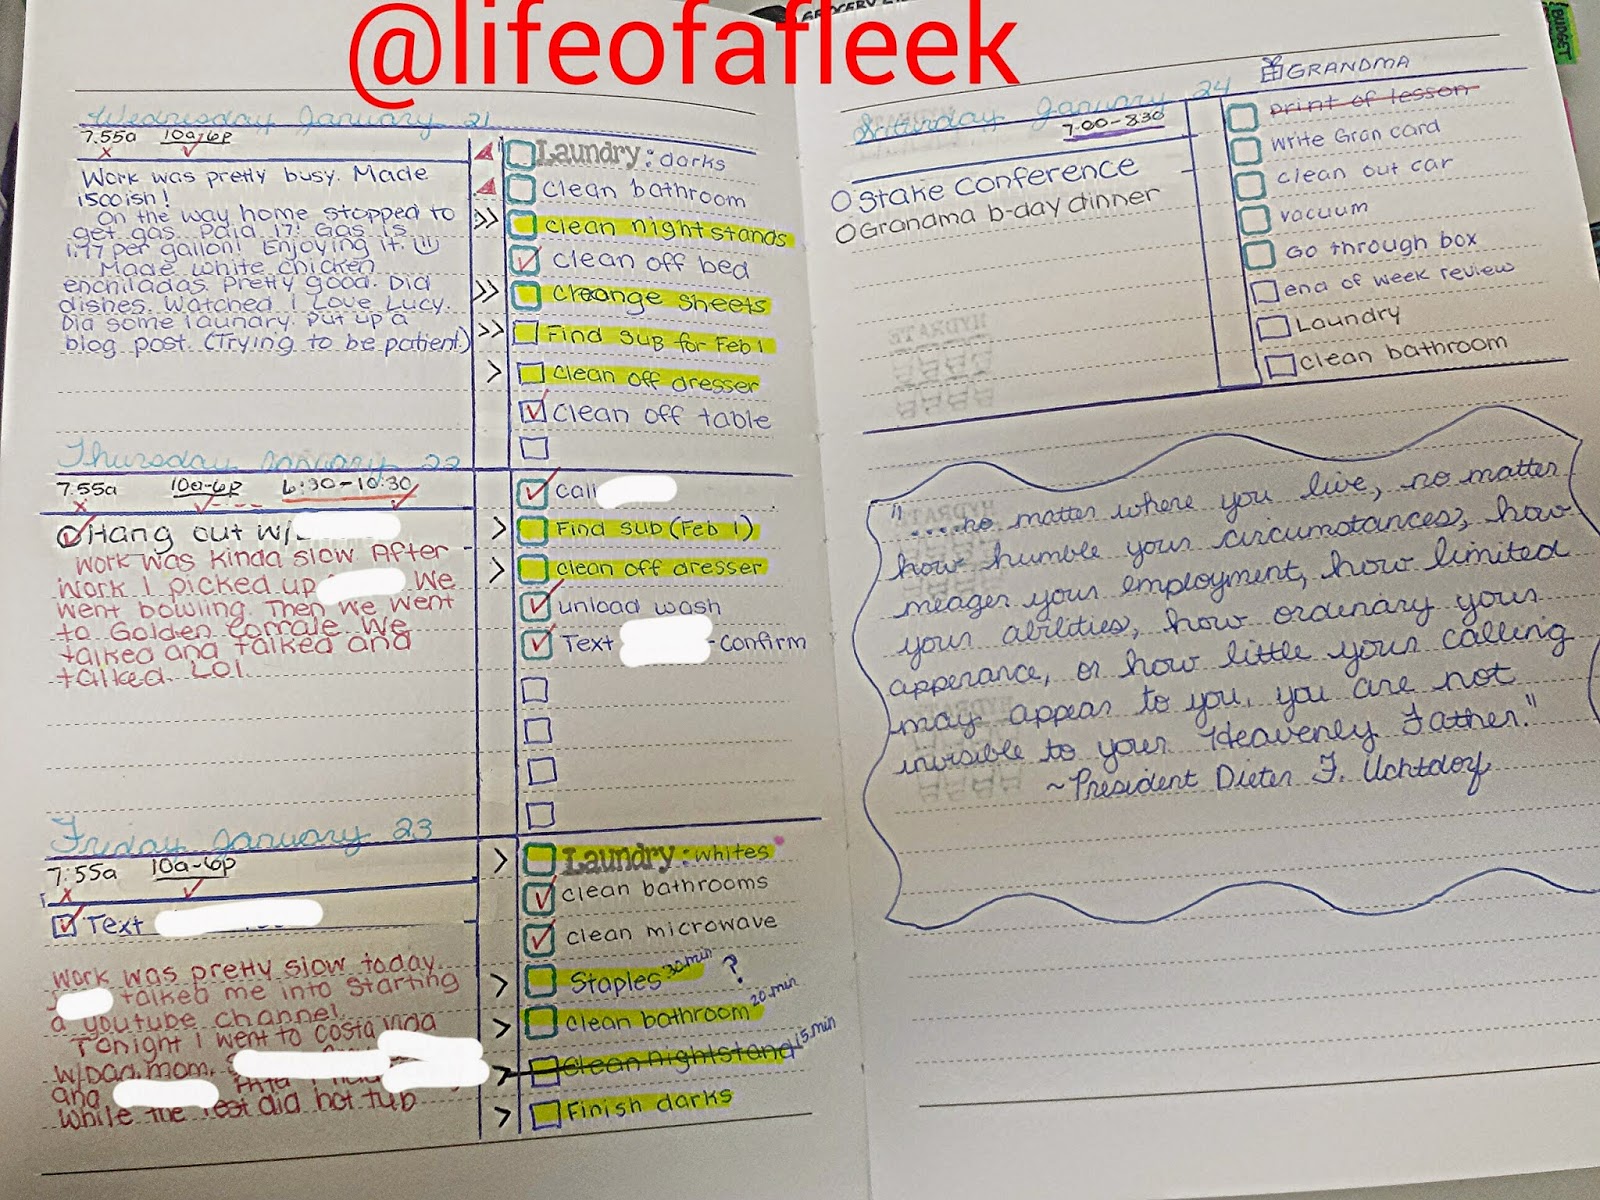 @lifeofafleek
BUDGET
Wednesday January 21
7:55a 10a-6p
Work was pretty busy. Made
1500ish!
On the way home stopped to
get gas. Paid 17! Gas is
1.77 per gallon! Enjoying it.
Made white chicken
enchiladas. Pretty good. Did
dishes. Watched I Love Lucy.
Did some laundry. Put up a
blog post. (Trying to be patient.)
Laundry: darks
clean bathroom
clean nightstands
clean off bed
change sheets
Find sub for Feb 1
clean off dresser
clean off table
Thursday January 22
7:55a 10a-6p 6:30-10:30
Hang out w/
Work was kinda slow After
work I picked up We
went bowling. Then we went
to Golden Corrale. We
talked and talked and
talked. LOL
Call
Find sub (Feb 1)
clean off dresser
unload wash
Text - Confirm
Friday January 23
7:55a 10a-6p
Text
Work was pretty slow today.
J talked me into starting
a youtube channel.
Tonight I went to Costa Vida
w/Dad, mom,
and
while the rest did hot tub
Laundry: whites
clean bathrooms
clean microwave
Staples 30 min ?
clean bathroom 20 min
clean nightstand 15 min
Finish darks
Saturday January 24
7:00-8:30
O Stake Conference
O Grandma b-day dinner
GRANDMA
print of lesson
write Gran card
clean out car
vacuum
Go through box
end of week review
Laundry
clean bathroom
HYDRATE
"....no matter where you live, no matter
how humble your circumstances, how
meager your employment, how limited
your abilities, how ordinary your
apperance, or how little your calling
may appear to you, you are not
invisible to your Heavenly Father."
~President Dieter F. Uchtdorf